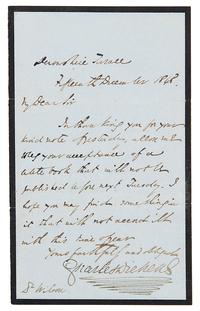 Devonshire Terrace
Fifteenth December 1848.
My Dear Sir
In thanking you for your
kind note of yesterday, allow me
to beg your acceptance of a
little book that will not be
published before next Tuesday. I
hope you may find something in
it that will not accord ill
with this time of year
Yours faithfully and obliged
Charles Dickens
Dr Wilson